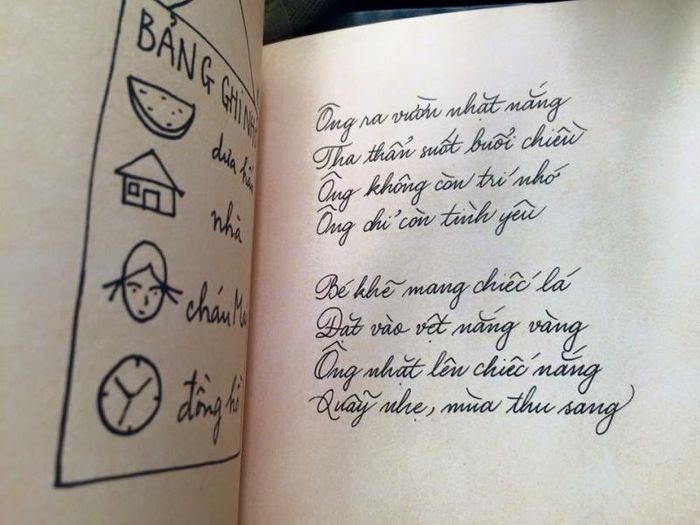 BẢNG GHI NHỚ
dưa hấu
nhà
cháu
đồng hồ
Ông ra vườn nhặt nắng
Tha thẩn suốt buổi chiều
Ông không còn trí nhớ
Ông chỉ còn tình yêu
Bé khẽ mang chiếc lá
Đặt vào vệt nắng vàng
Ông nhặt lên chiếc nắng
Quẫy nhẹ, mùa thu sang